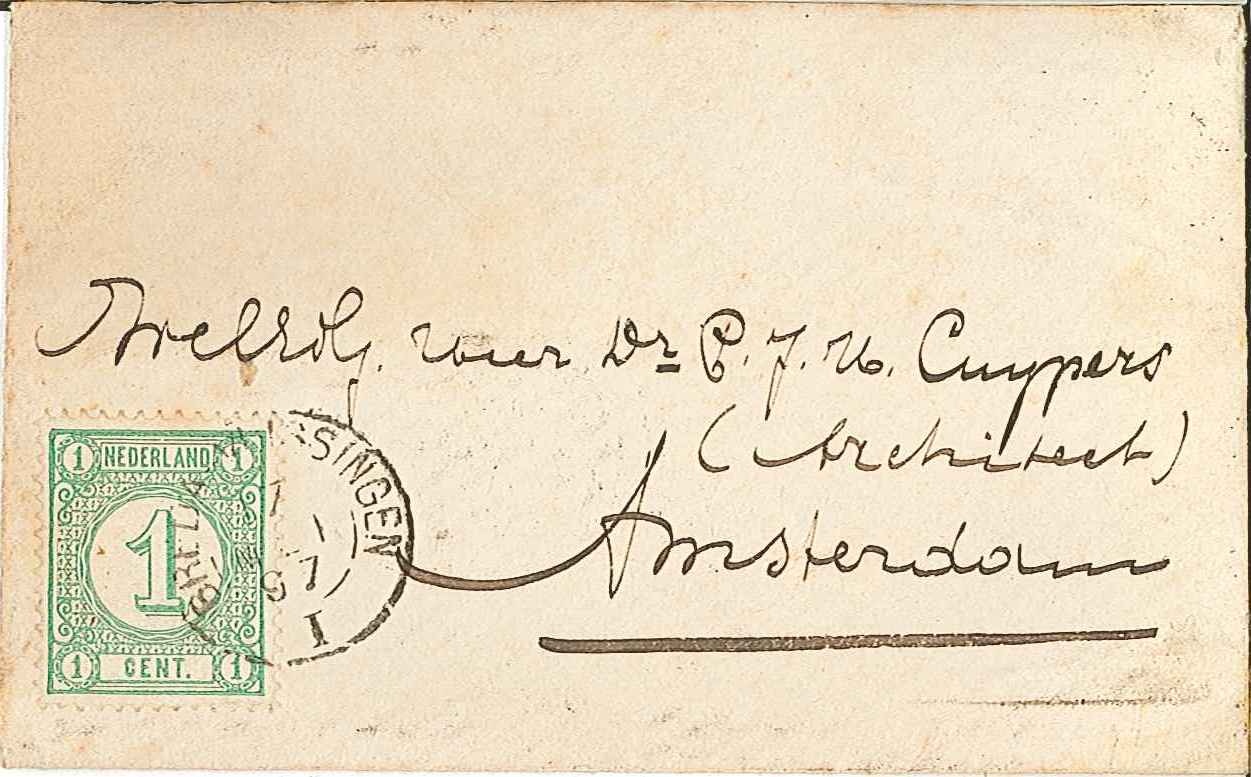 Heer Dr P. J. H. Cuypers
(Architect)
Amsterdam
1 NEDERLAND 1
1
1 CENT. 1
SSINGEN
I